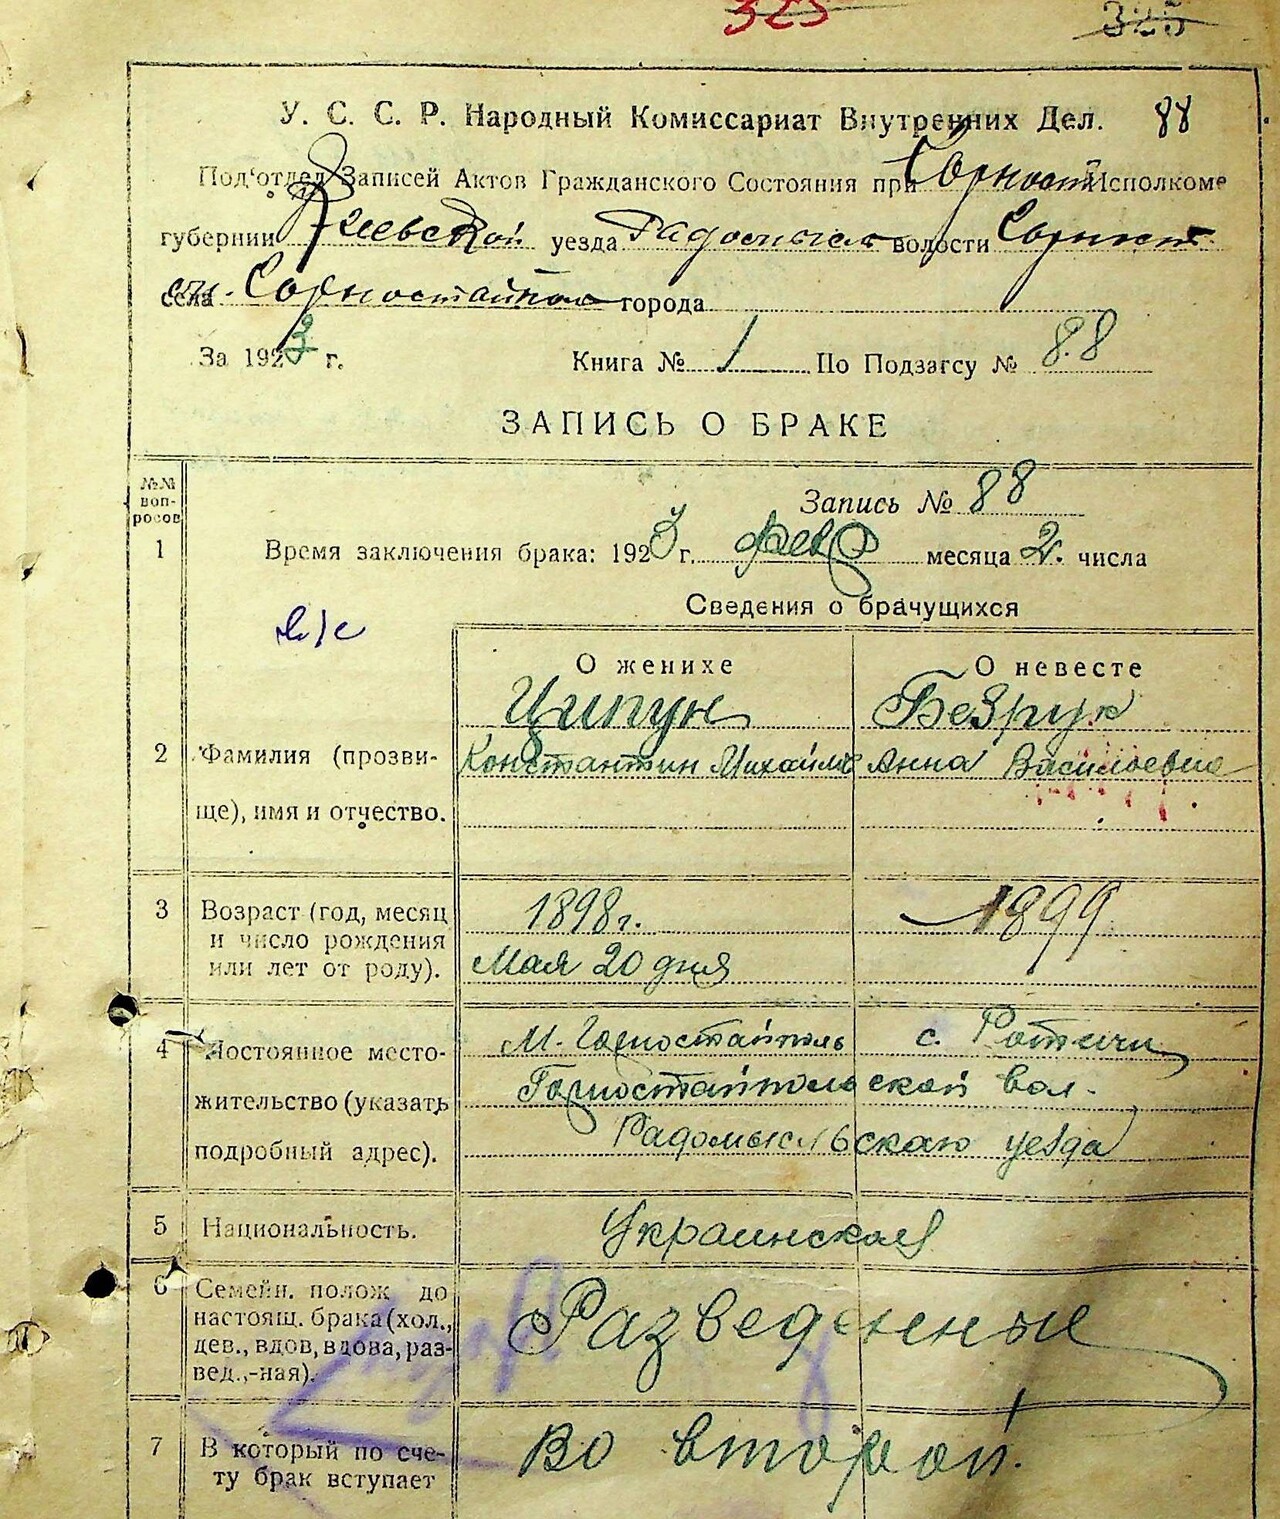 325
325
У. С. С. Р. Народный Комиссариат Внутренних Дел. 88
Под'отдел Записей Актов Гражданского Состояния при Горност Исполкоме
губернии Киевской уезда Радомысль волости Горност
села Горностайполь города
За 1923 г. Книга № 1 По Подзагсу № 88
ЗАПИСЬ О БРАКЕ
№№ воп-росов
Запись № 88
1 Время заключения брака: 1923 г. Февр месяца 2. числа
Сведения о брачущихся
О женихе О невесте
Ципун Безрук
2 Фамилия (прозви- Константин Михайлов Анна Васильевна
ще), имя и отчество.
3 Возраст (год, месяц 1898 г. 1899
и число рождения
или лет от роду). Мая 20 дня
4 Постоянное место- М. Горностайполь с. Ротичи
жительство (указать Горностайпольской вол.
подробный адрес). Радомысльскаго уезда
5 Национальность. Украинская
6 Семейн. полож до
настоящ. брака (хол., Разведенные
дев., вдов, вдова, раз-
вед.,-ная).
7 В который по сче- Во второй.
ту брак вступает